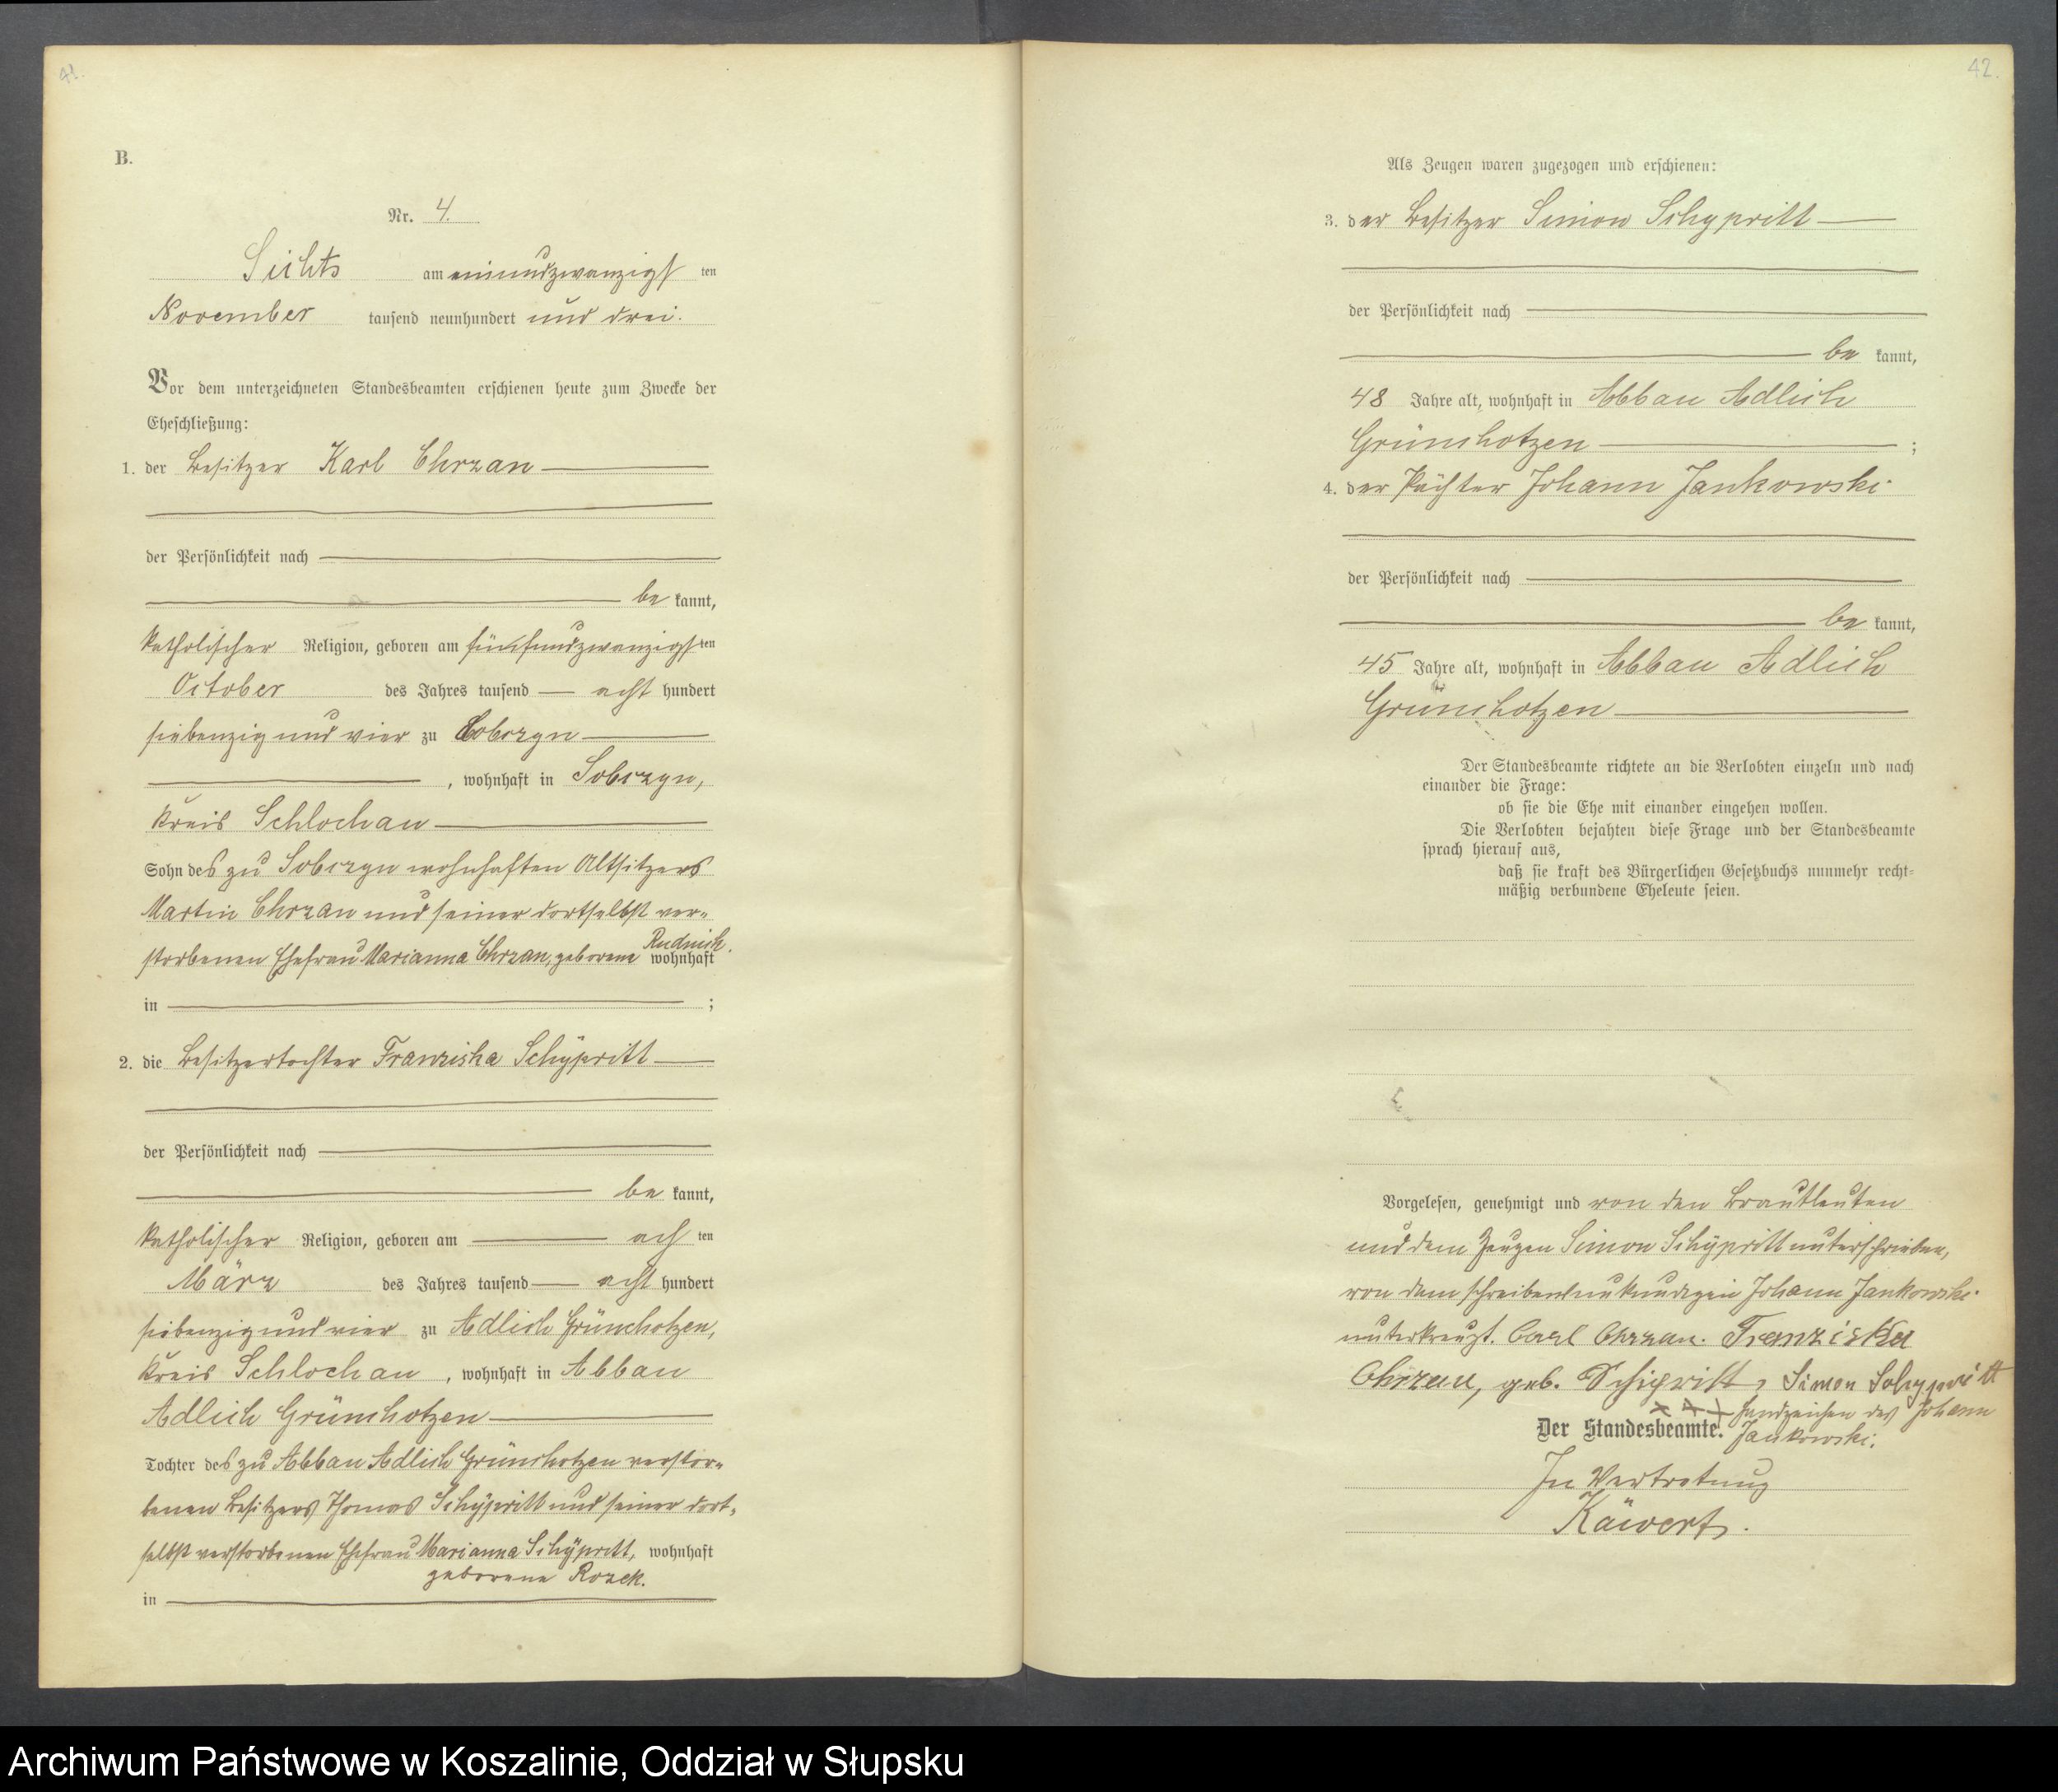 42.
B.
Nr. 4.
Sichts am einundzwanzigsten
November tausend neunhundert und drei.
Vor dem unterzeichneten Standesbeamten erschienen heute zum Zwecke der
Eheschließung:
1. der Besitzer Karl Chrzan
der Persönlichkeit nach
be kannt,
katholischer Religion, geboren am fünfundzwanzigsten
October des Jahres tausend acht hundert
siebenzig und vier zu
, wohnhaft in Sobczyn,
Kreis Schlochau
Sohn des zu Sobczyn wohnhaften Altsitzers
Martin Chrzan und seiner dortselbst ver-
storbenen Ehefrau Marianna Chrzan, geborene Rudnick. wohnhaft
in ;
2. die Besitzertochter Franziska Schÿpritt
der Persönlichkeit nach
be kannt,
katholischer Religion, geboren am achten
März des Jahres tausend acht hundert
siebenzig und vier zu Adlich Grünchotzen,
Kreis Schlochau, wohnhaft in Abbau
Adlich Grünchotzen
Tochter des zu Abbau Adlich Grünchotzen verstor-
benen Besitzers Thomas Schÿpritt und seiner dort-
selbst verstorbenen Ehefrau Marianna Schÿpritt, wohnhaft
geborene Rozek.
in
Als Zeugen waren zugezogen und erschienen:
3. der Besitzer Simon Schypritt
der Persönlichkeit nach
be kannt,
48 Jahre alt, wohnhaft in Abbau Adlich
Grünchotzen ;
4. der Pächter Johann Jankowski
der Persönlichkeit nach
be kannt,
45 Jahre alt, wohnhaft in Abbau Adlich
Grünchotzen
Der Standesbeamte richtete an die Verlobten einzeln und nach
einander die Frage:
ob sie die Ehe mit einander eingehen wollen.
Die Verlobten bejahten diese Frage und der Standesbeamte
sprach hierauf aus,
daß sie kraft des Bürgerlichen Gesetzbuchs nunmehr recht-
mäßig verbundene Eheleute seien.
Vorgelesen, genehmigt und von den Brautleuten
und dem Zeugen Simon Schÿpritt unterschrieben,
von dem schreibensunkundigen Johann Jankowski
unterkreuzt. Carl Chrzan. Franziska
Chrzan, geb. Schipritt, Simon Schypritt
x x x Handzeichen des Johann
Der Standesbeamte. Jankowski.
In Vertretung
Archiwum Państwowe w Koszalinie, Oddział w Słupsku